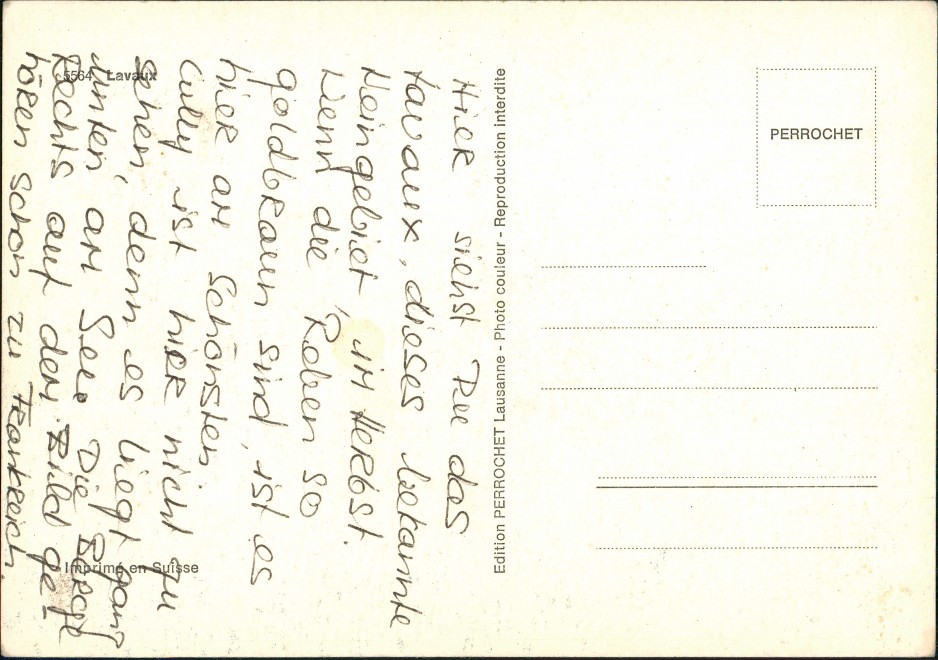 5564 Lavaux
Hier siehst Du das
Lavaux, dieses bekannte
Weingebiet im Herbst.
Wenn die Reben so
goldbraun sind, ist es
hier am Schönsten
Cully ist hier nicht zu
sehen, denn es liegt ganz
unten, am See. Die Berge
Rechts auf dem Bild ge-
hören schon zu Frankreich.
Imprimé en Suisse
Edition PERROCHET Lausanne - Photo couleur - Reproduction interdite
PERROCHET